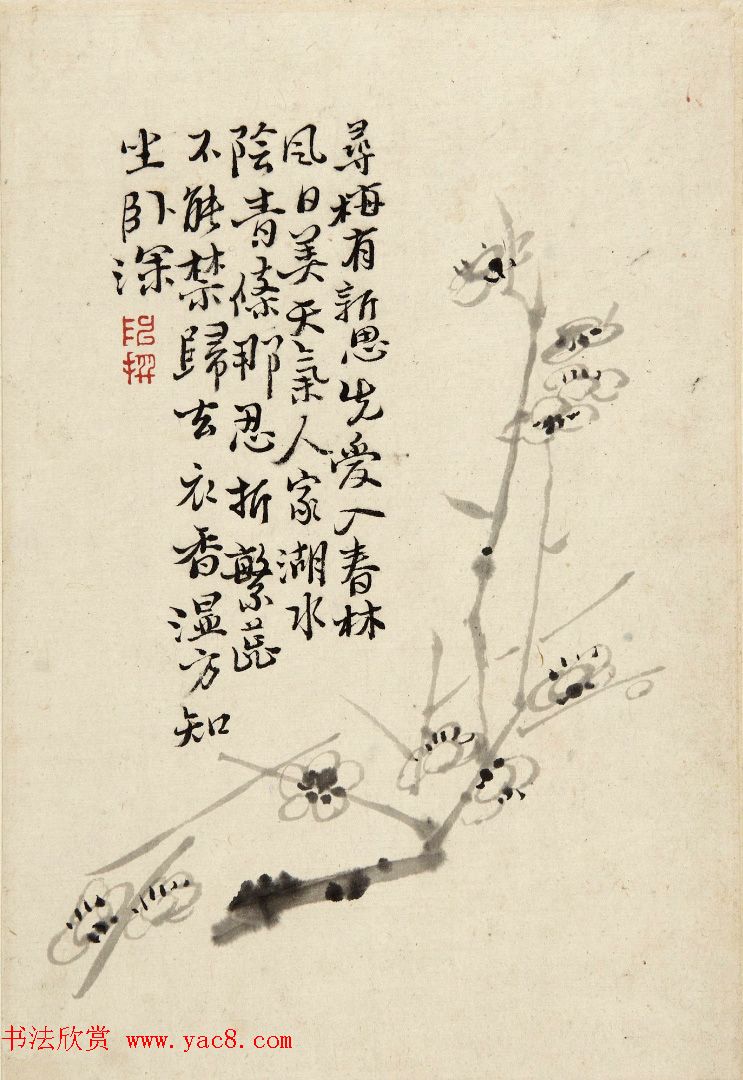 尋梅有新思先愛入春林
風日美天氣人家湖水
陰青條那忍折繁蕊
不能禁歸去衣香溫方知
坐卧深
书法欣赏 www.yac8.com